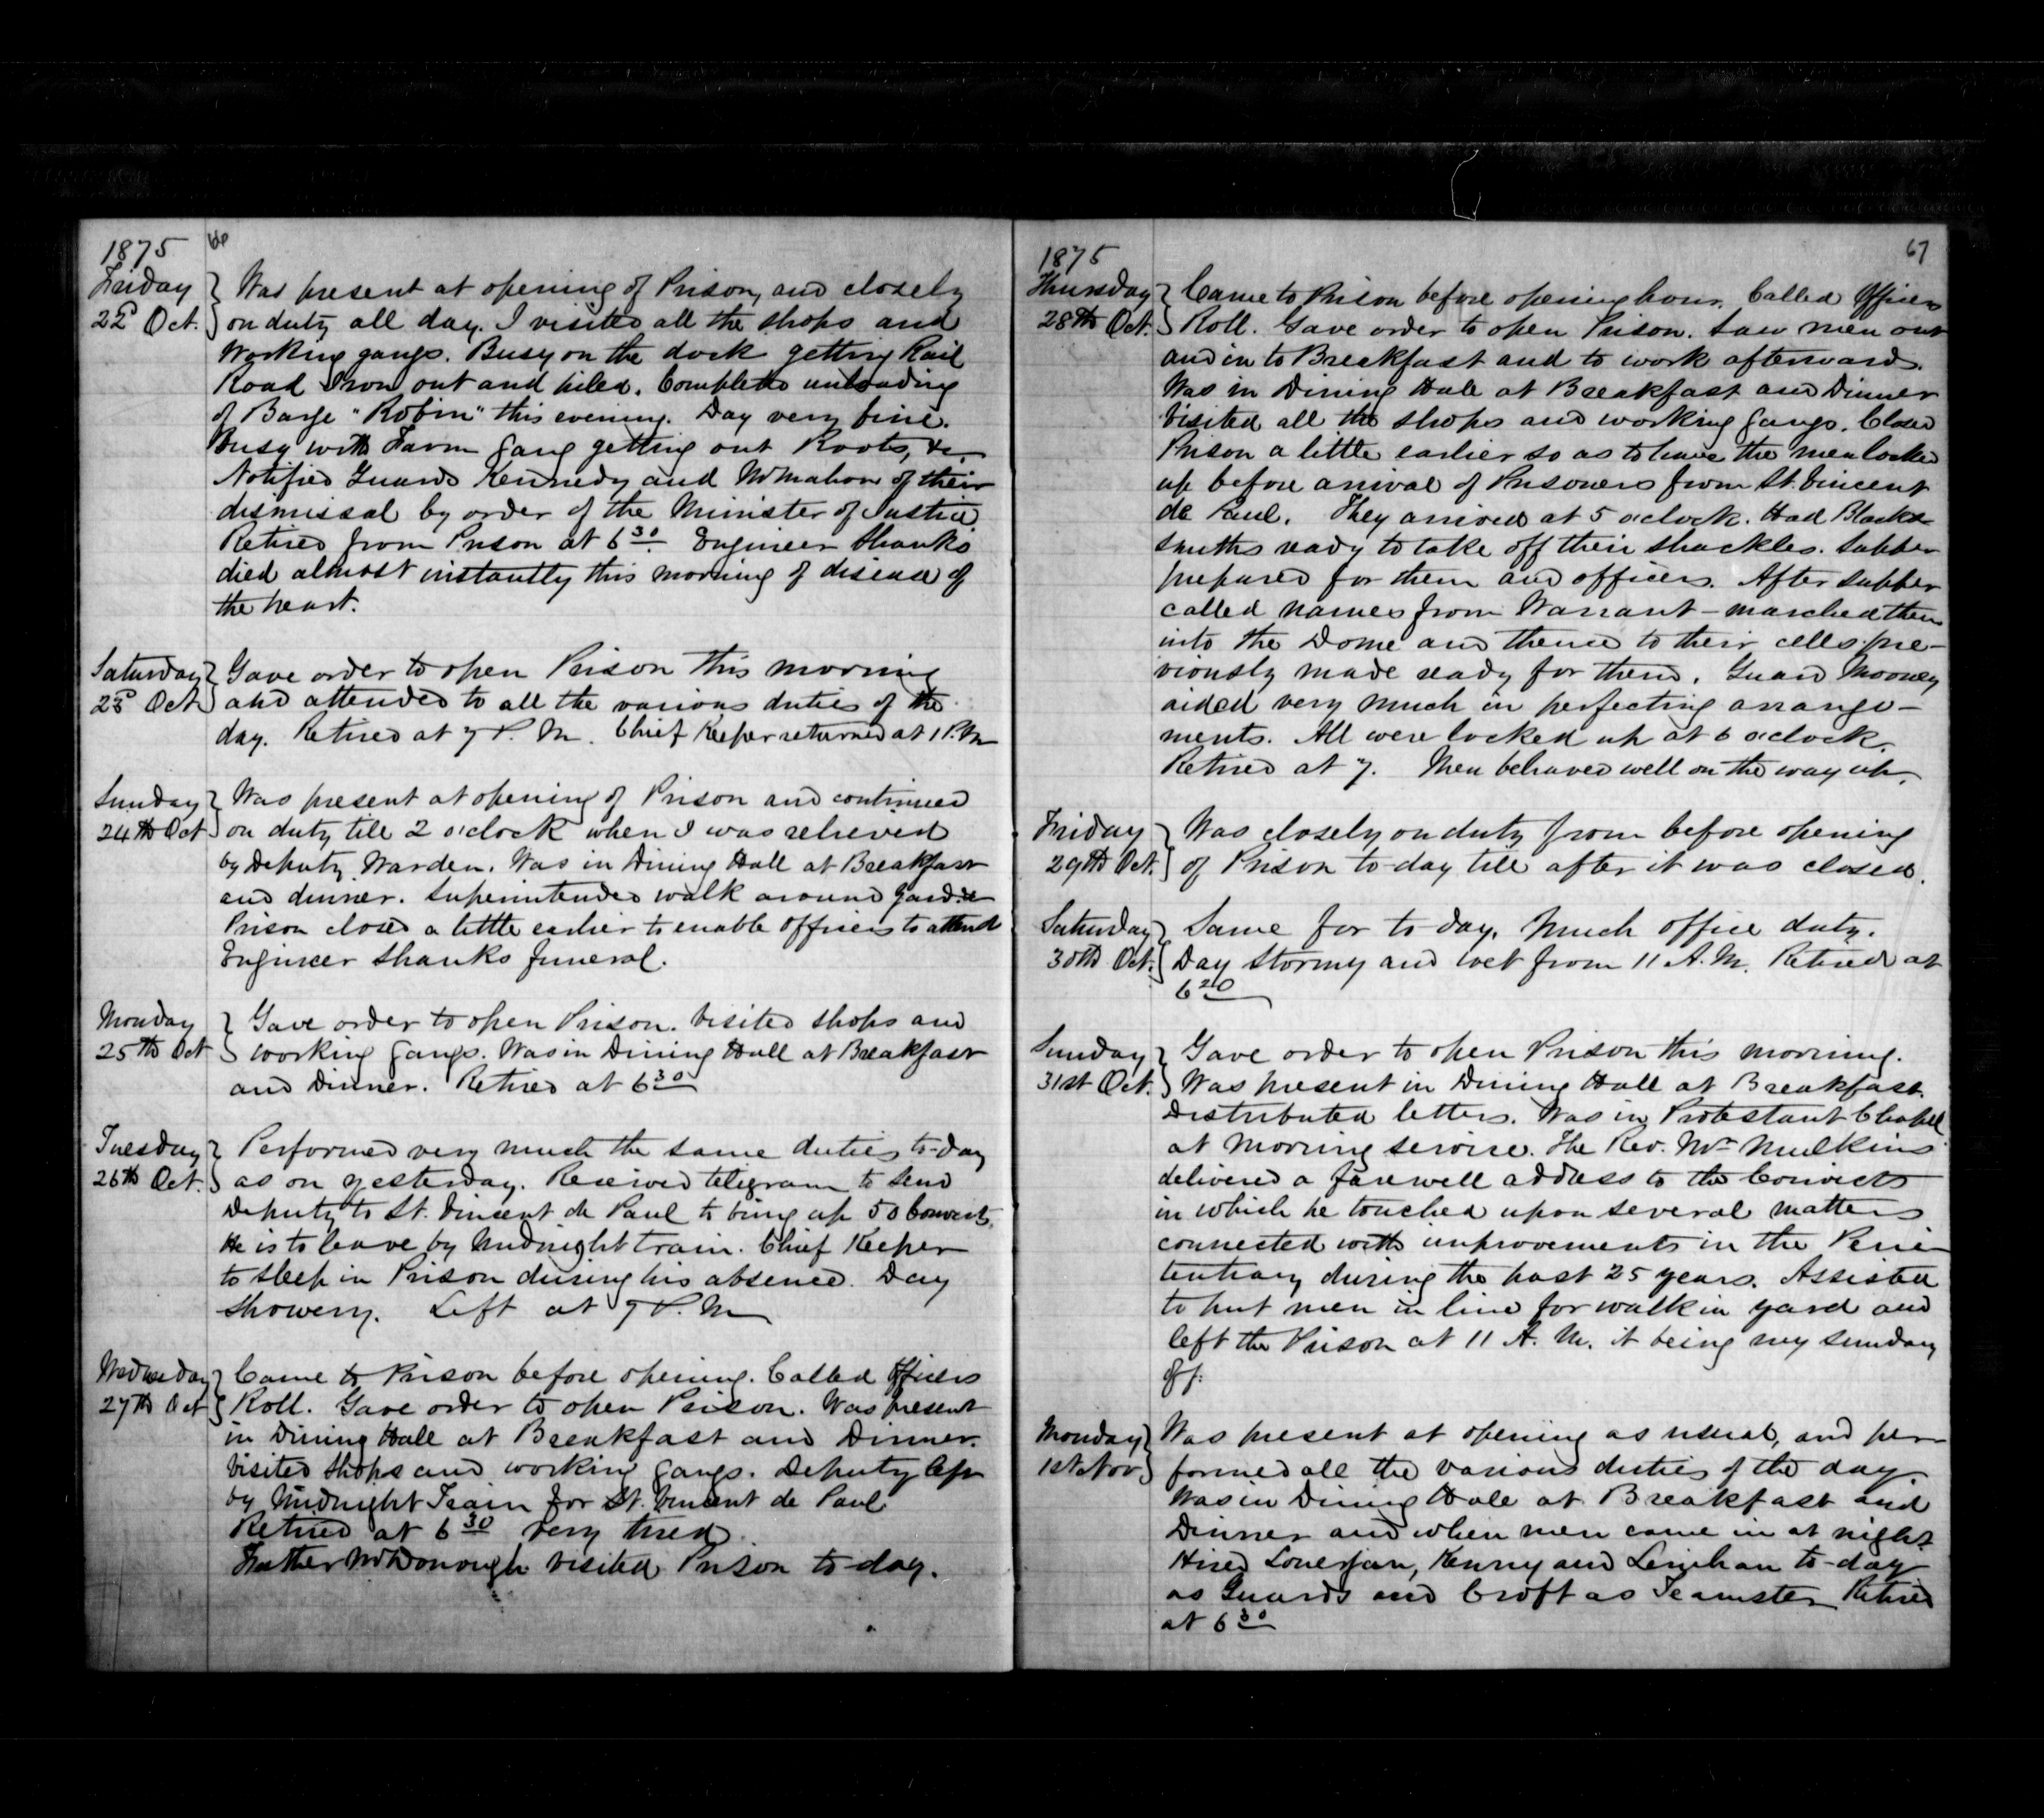 1875
66
Friday
22d Oct.
Was present at opening of Prison, and closely
on duty all day. I visited all the shops and
Working gangs. Busy on the dock getting Rail
Road Iron out and piled. Completed unloading
of Barge "Robin" this evening. Day very fine.
Busy with Farm Gang getting out Roots, &c.
Notified Guards Kennedy and McMahon of their
dismissal by order of the Minister of Justice.
Retired from Prison at 6 30. Engineer Shanks
died almost instantly this morning of disease of
the heart.
Saturday
23d Oct.
Gave order to open Prison this morning
and attended to all the various duties of the
day. Retired at 7 P. M. Chief Keeper returned at 1 P. M
Sunday
24th Oct
Was present at opening of Prison and continued
on duty till 2 o'clock when I was relieved
by Deputy Warden. Was in Dining Hall at Breakfast
and dinner. Superintended walk around Yard
Prison closed a little earlier to enable Officers to attend
Engineer Shanks funeral.
Monday
25th Oct
Gave order to open Prison. Visited shops and
working gangs. Was in Dining Hall at Breakfast
and Dinner. Retired at 6 30
Tuesday
26th Oct.
Performed very much the same duties to-day
as on yesterday. Received telegram to send
Deputy to St. Vincent de Paul to bring up 50 Convicts.
He is to leave by Midnight train. Chief Keeper
to sleep in Prison during his absence. Day
showery. Left at 7 P. M
Wednesday
27th Oct
Came to Prison before opening. Called Officers
Roll. Gave order to open Prison. Was present
in Dining Hall at Breakfast and Dinner.
Visited Shops and working gangs. Deputy left
by Midnight Train for St. Vincent de Paul
Retired at 6 30 very tired.
Father McDonough visited Prison to-day.
67
1875
Thursday
28th Oct.
Came to Prison before opening hour. Called Officers
Roll. Gave order to open Prison. Saw men out
and in to Breakfast and to work afterward.
Was in Dining Hall at Breakfast and Dinner
Visited all the shops and working gangs. Closed
Prison a little earlier so as to have the men locked
up before arrival of Prisoners from St. Vincent
de Paul. They arrived at 5 o'clock. Had Black-
smiths ready to take off their shackles. Supper
prepared for them and officers. After supper
called names from Warrant - marched them
into the Dome and thence to their cells pre-
viously made ready for them. Guard Mooney
aided very much in perfecting arrange-
ments. All were locked up at 6 o'clock.
Retired at 7. Men behaved well on the way up.
Friday
29th Oct.
Was closely on duty from before opening
of Prison to-day till after it was closed.
Saturday
30th Oct.
Same for to-day. Much office duty.
Day stormy and wet from 11 A. M. Retired at
6 20
Sunday
31st Oct.
Gave order to open Prison this morning.
Was present in Dining Hall at Breakfast.
Distributed letters. Was in Protestant Chapel
at morning service. The Rev. Mr Mulkins
delivered a farewell address to the Convicts
in which he touched upon several matters
connected with improvements in the Peni-
tentiary during the past 25 years. Assisted
to put men in line for walk in yard and
left the Prison at 11 A. M. it being my Sunday
off.
Monday
1st Nov.
Was present at opening as usual, and per-
formed all the various duties of the day.
Was in Dining Hall at Breakfast and
Dinner and when men came in at night.
Hired Lonergan, Kenny and Lenihan to-day
as Guards and Croft as Teamster Retired
at 6 30